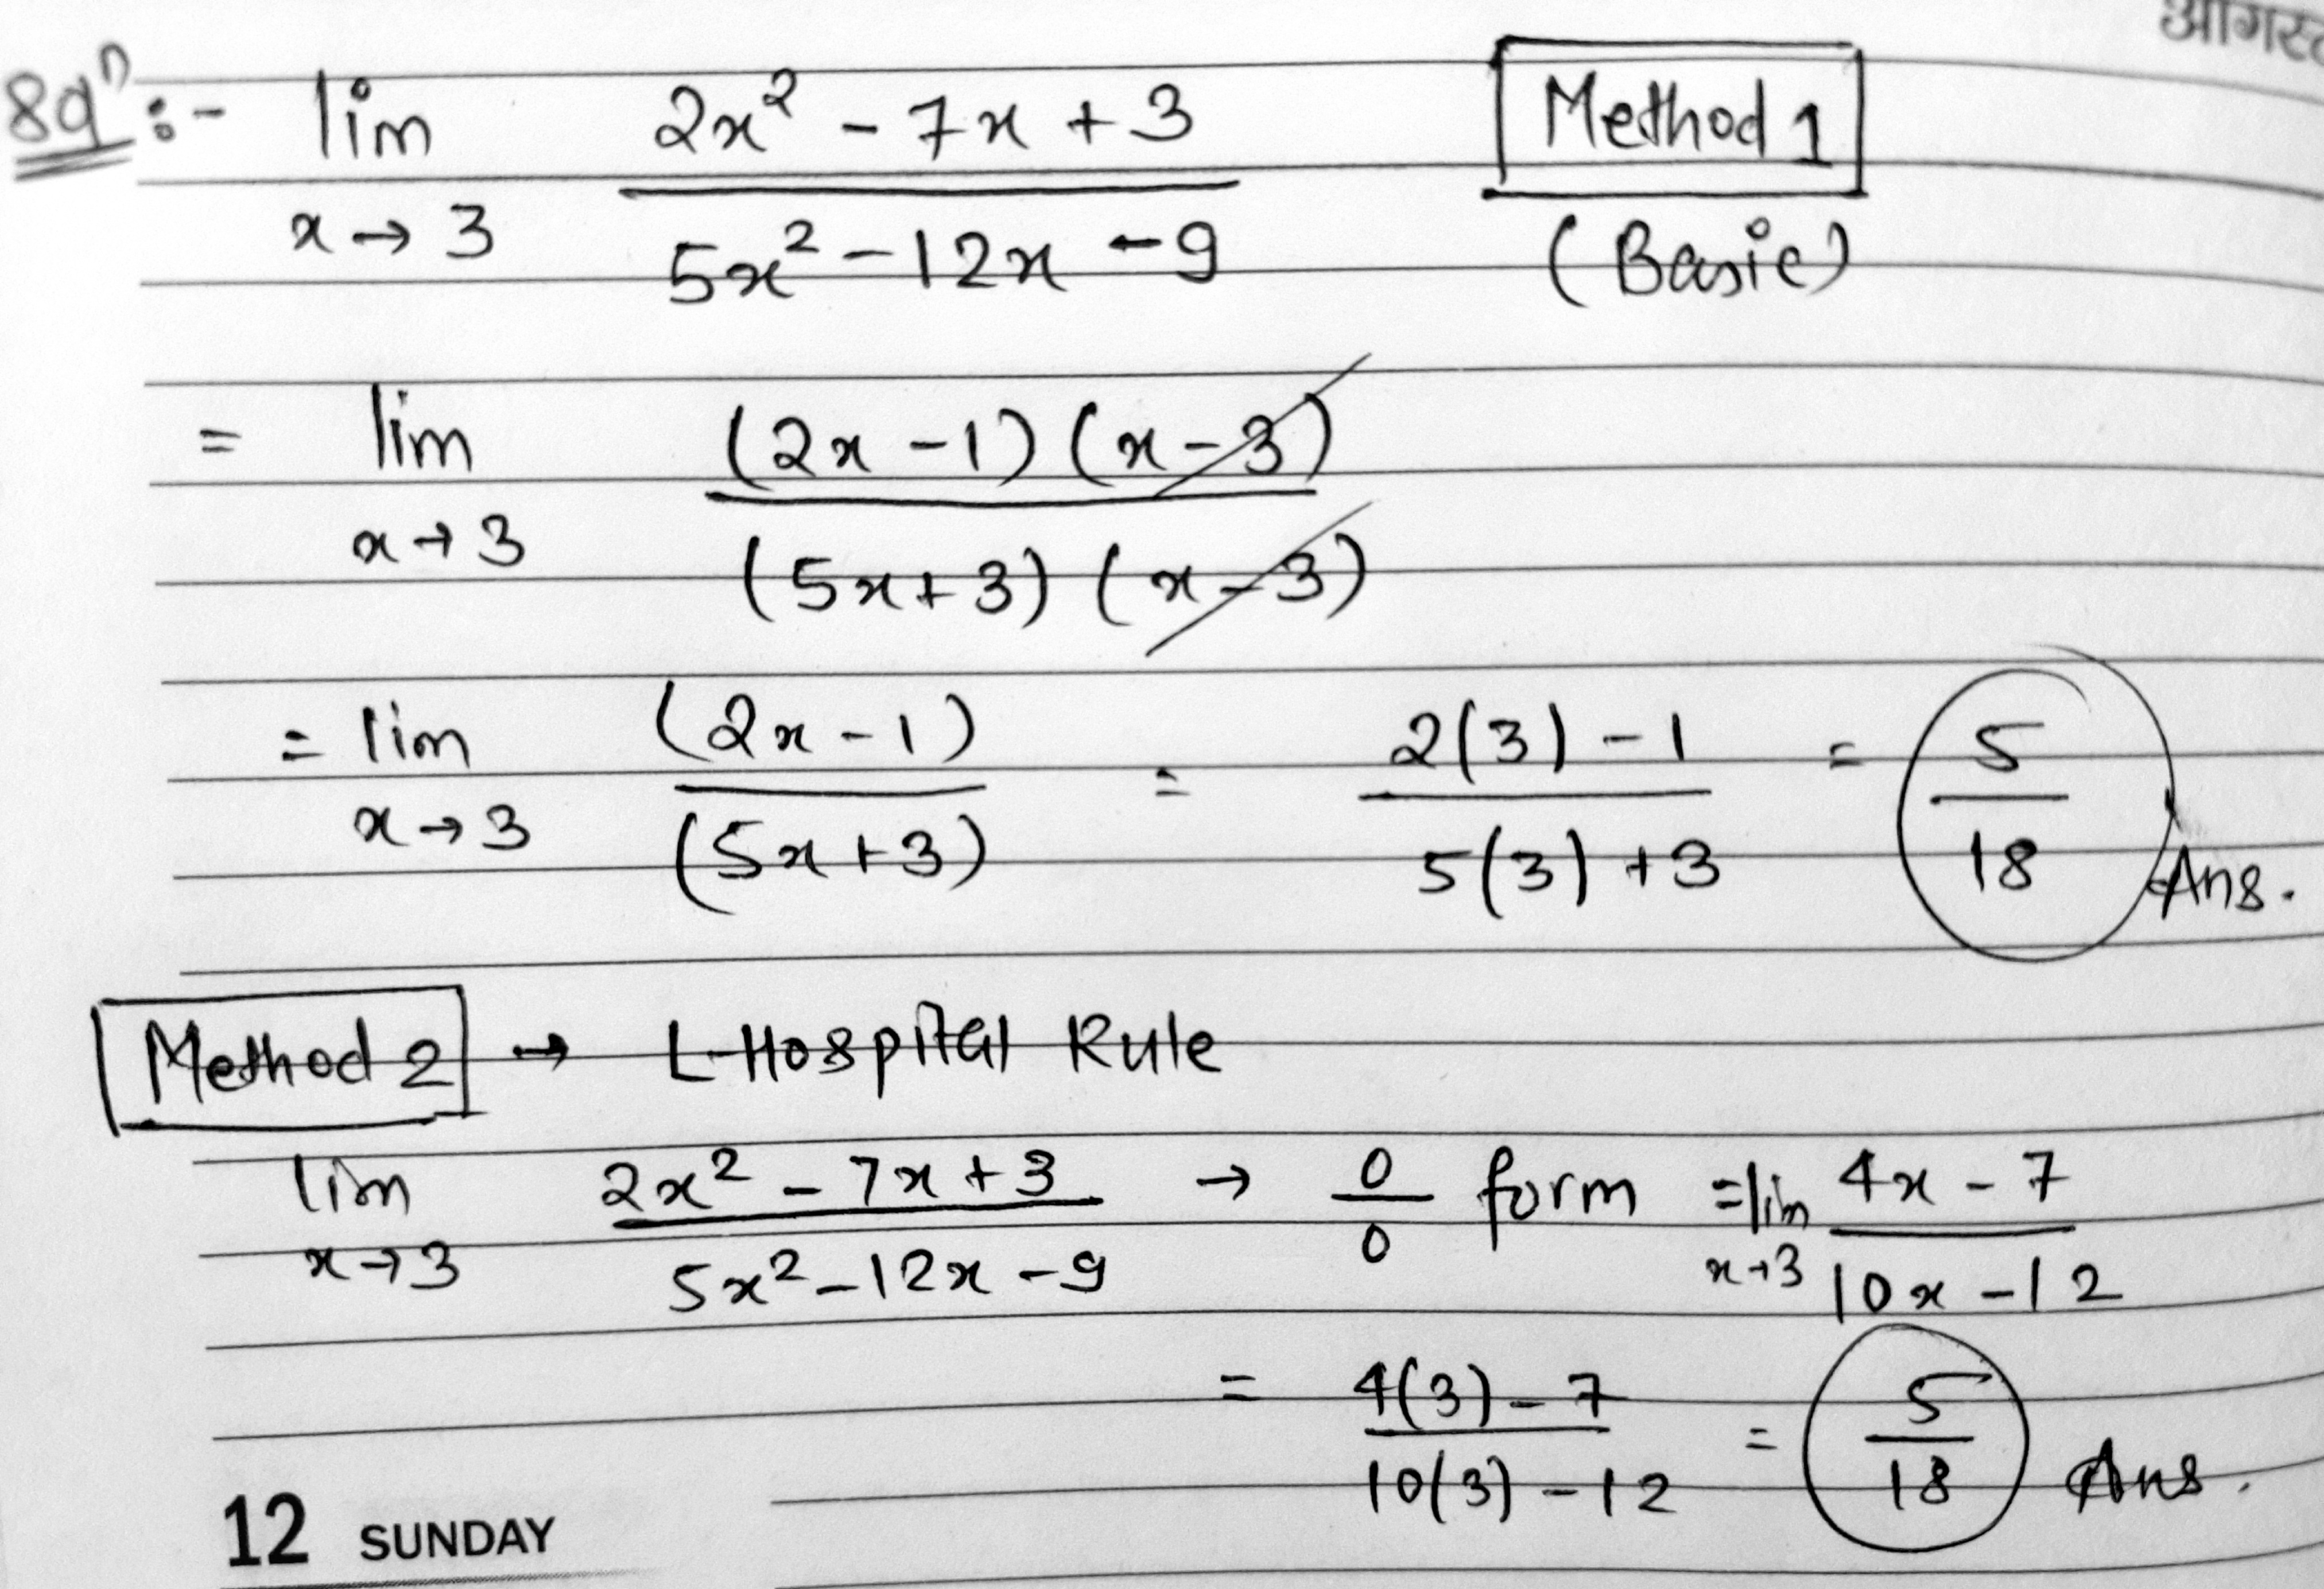 ऑगस्ट
8qⁿ :- lim x→3 (2x² - 7x + 3)/(5x² - 12x - 9) Method 1
(Basic)
= lim x→3 ((2x - 1)(x - 3))/((5x + 3)(x - 3))
= lim x→3 (2x - 1)/(5x + 3) = (2(3) - 1)/(5(3) + 3) = 5/18 Ans.
Method 2 → L-Hospital Rule
lim x→3 (2x² - 7x + 3)/(5x² - 12x - 9) → 0/0 form = lim x→3 (4x - 7)/(10x - 12)
= (4(3) - 7)/(10(3) - 12) = 5/18 Ans.
12 SUNDAY